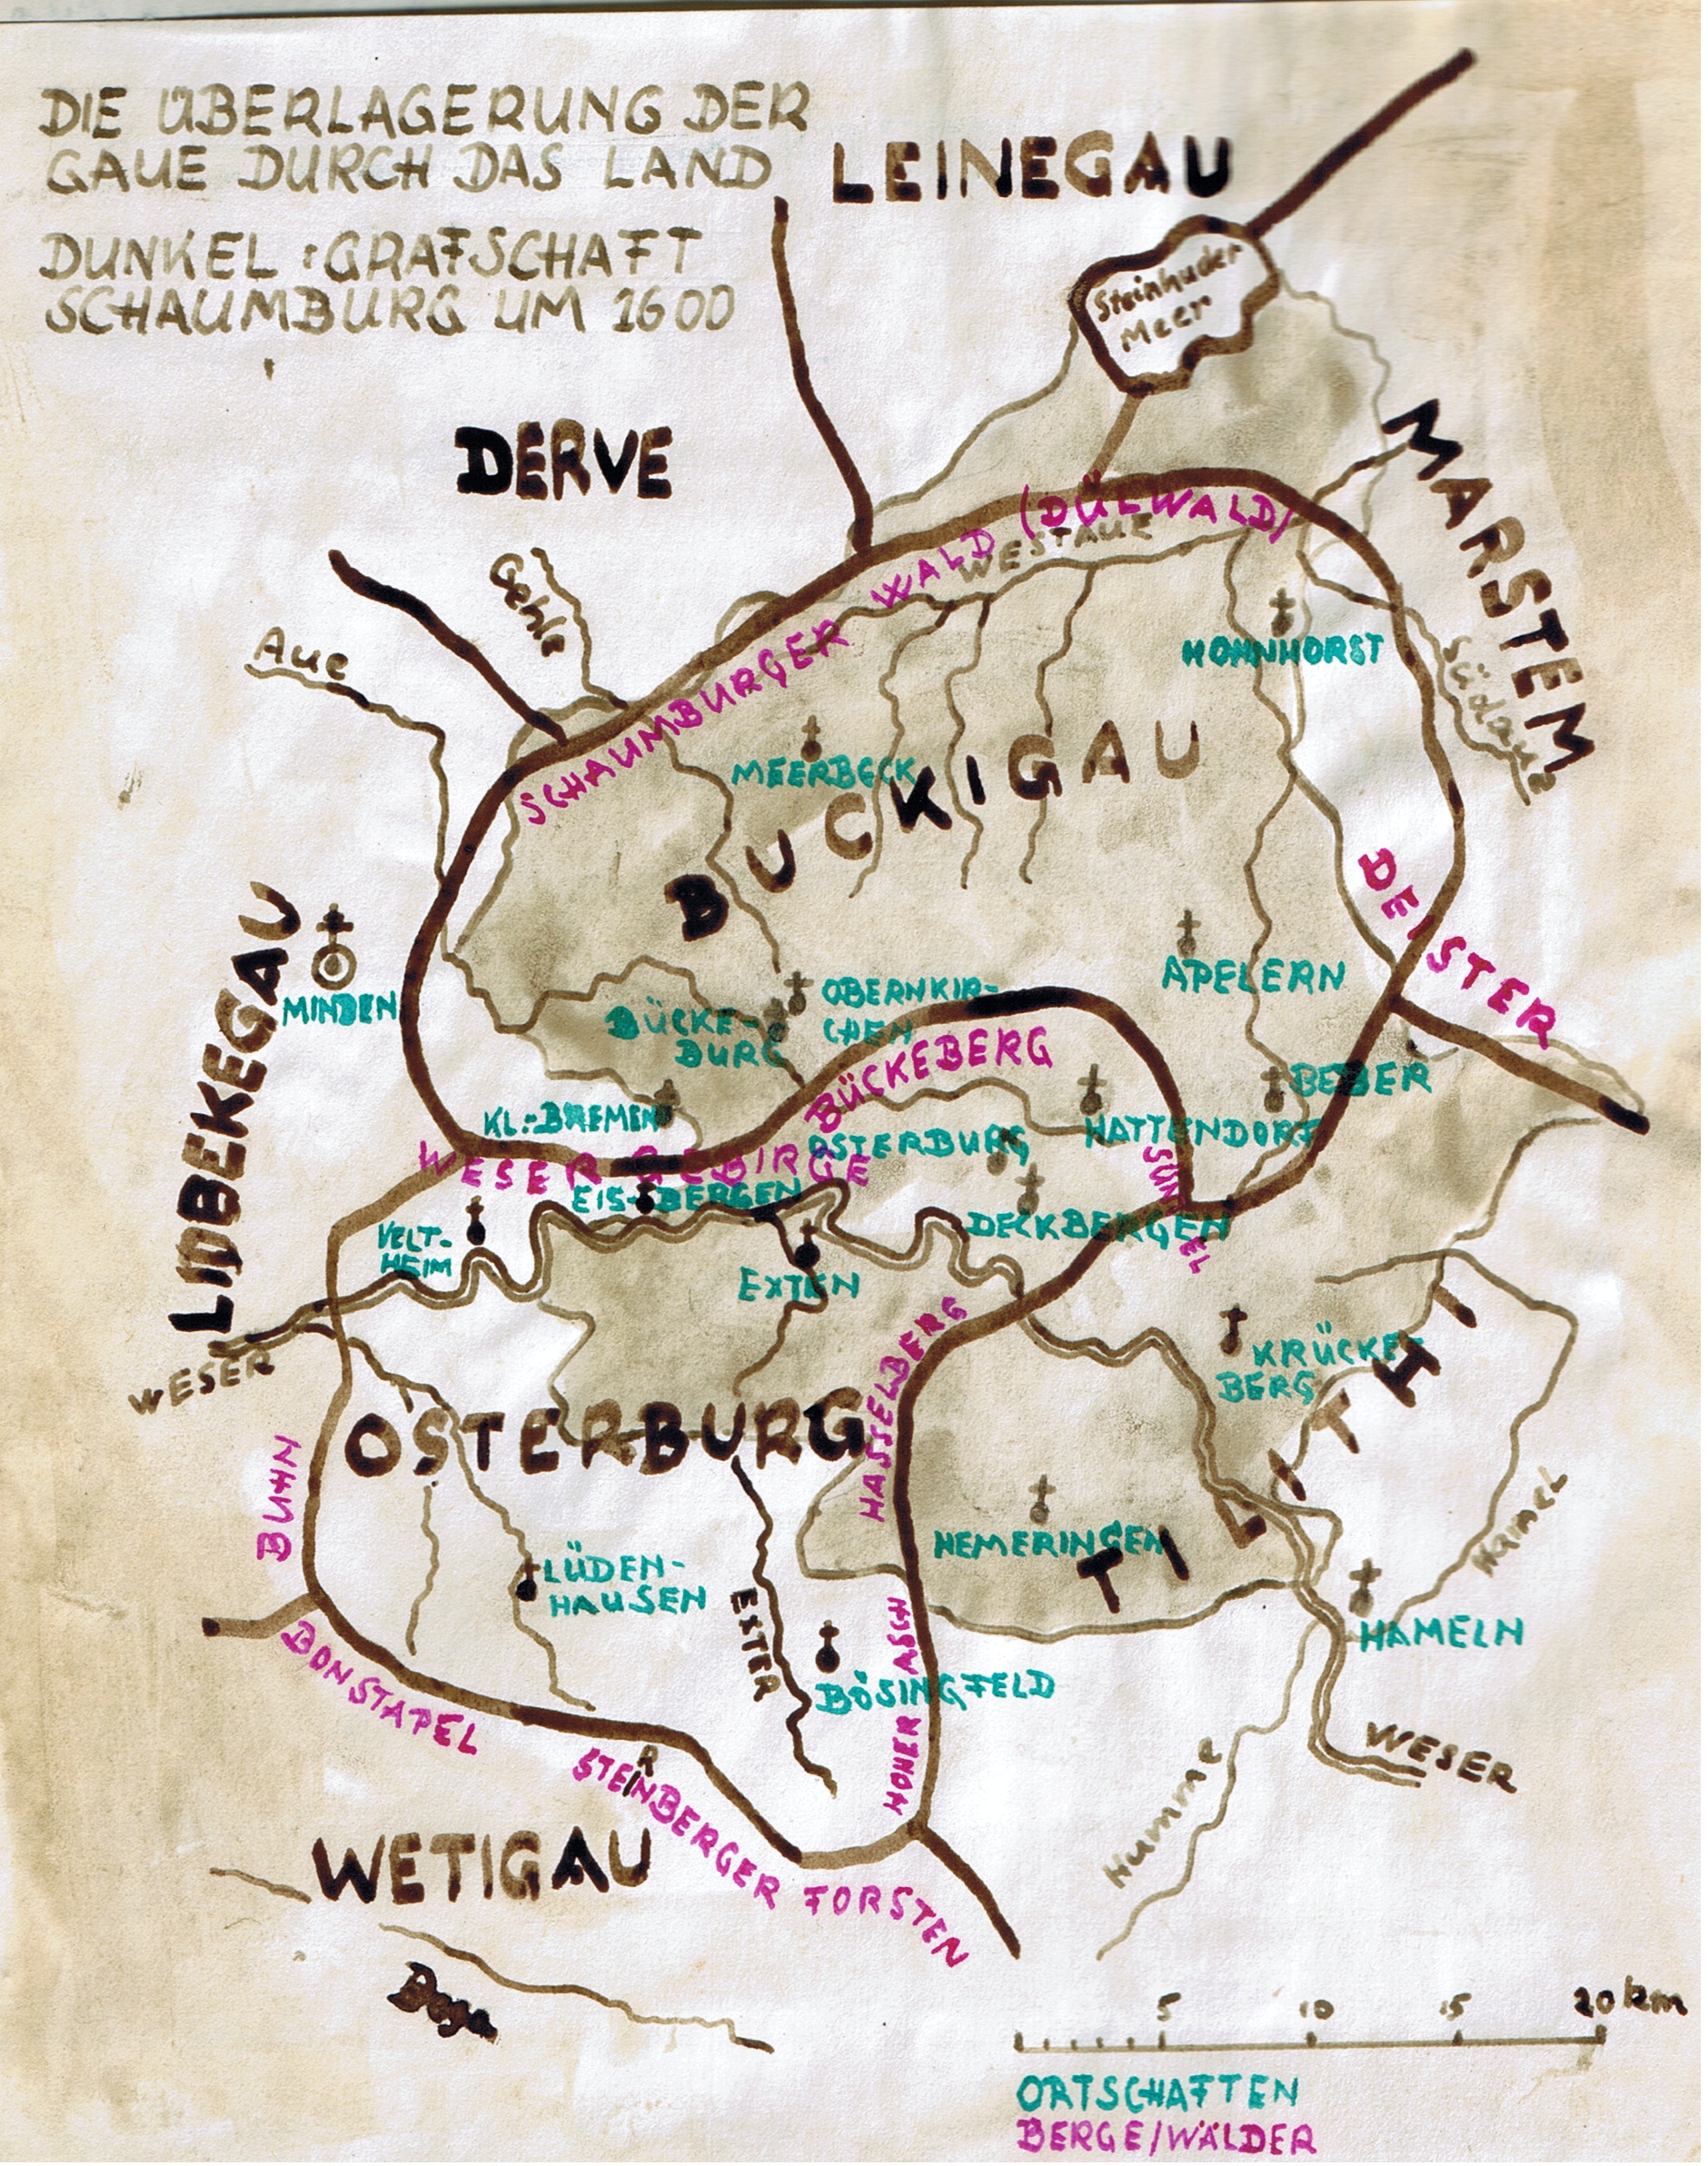 DIE ÜBERLAGERUNG DER
GAUE DURCH DAS LAND
DUNKEL : GRAFSCHAFT
SCHAUMBURG UM 1600
LEINEGAU
Steinhuder
Meer
DERVE
MARSTEM
SCHAUMBURGER WALD (DÜLWALD)
WESTAUE
Gehle
Aue
HOHNHORST
Südaue
MEERBECK
BUCKIGAU
DEISTER
LIDBEKEGAU
MINDEN
APELERN
OBERNKIR-
CHEN
BÜCKE-
BURG
BÜCKEBERG
BEBER
KL.-BREMEN
HATTENDORF
OSTERBURG
WESERGEBIRGE
SÜNTEL
EIS-BERGEN
DECKBERGEN
VELT-
HEIM
EXTEN
WESER
HASSELBERG
KRÜCKE-
BERG
TILITHI
OSTERBURG
BUHN
Hamel
HEMERINGEN
LÜDEN-
HAUSEN
EXTER
HOHER ASCH
HAMELN
BONSTAPEL
BÖSINGFELD
WESER
STERNBERGER FORSTEN
Humme
WETIGAU
Bega
5 10 15 20 km
ORTSCHAFTEN
BERGE/WÄLDER